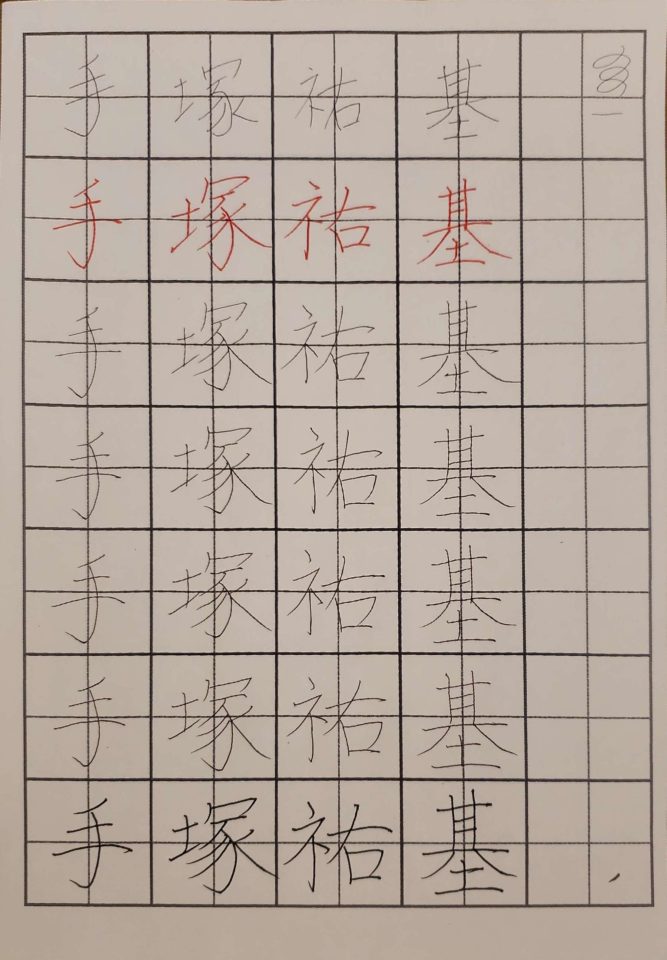 手塚祐基
手塚祐基
手塚祐基
手塚祐基
手塚祐基
手塚祐基
手塚祐基